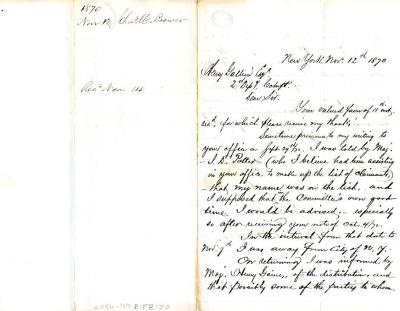 1870
Nov 12
Recd Nov 14
New York Nov. 12th 1870
Henry Esqr
2d Dept.
Dear Sir.
Your valued favor of 11th inst.
recd. for which please receive my thanks.
Sometime previous to my writing to
your office I was told by Maj.
J. R. Potter (who I believe had been assisting
in your office to make up the list of claimants)
that my name was on the list. and
I supposed that the Committee's own good
time I would be advised, especially
so after receiving your note of
In the interval from that date to
Nov. 9th I was away from City of N. Y.
On returning I was informed by
Maj. Henry Gaines, of the distribution and
that possibly some of the parties to whom